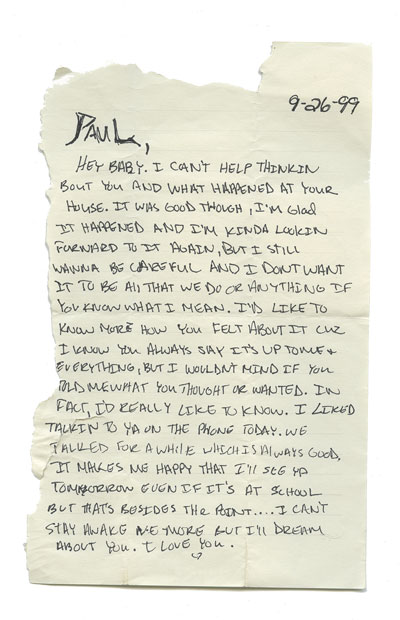 9-26-99
PAUL,
HEY BABY. I CAN'T HELP THINKIN
BOUT YOU AND WHAT HAPPENED AT YOUR
HOUSE. IT WAS GOOD THOUGH, I'M GLAD
IT HAPPENED AND I'M KINDA LOOKIN
FORWARD TO IT AGAIN, BUT I STILL
WANNA BE CAREFUL AND I DONT WANT
IT TO BE All THAT WE DO OR ANYTHING IF
YOU KNOW WHAT I MEAN. I'D LIKE TO
KNOW MORE HOW YOU FELT ABOUT IT CUZ
I KNOW YOU ALWAYS SAY IT'S UP TO ME +
EVERYTHING, BUT I WOULDN'T MIND IF YOU
TOLD ME WHAT YOU THOUGHT OR WANTED. IN
FACT, I'D REALLY LIKE TO KNOW. I LIKED
TALKIN TO YA ON THE PHONE TODAY. WE
TALKED FOR A WHILE WHICH IS ALWAYS GOOD.
IT MAKES ME HAPPY THAT I'll SEE YA
TOMORROW EVEN IF IT'S AT SCHOOL
BUT THAT'S BESIDES THE POINT.... I CAN'T
STAY AWAKE MORE BUT I'll DREAM
ABOUT YOU. I LOVE YOU.